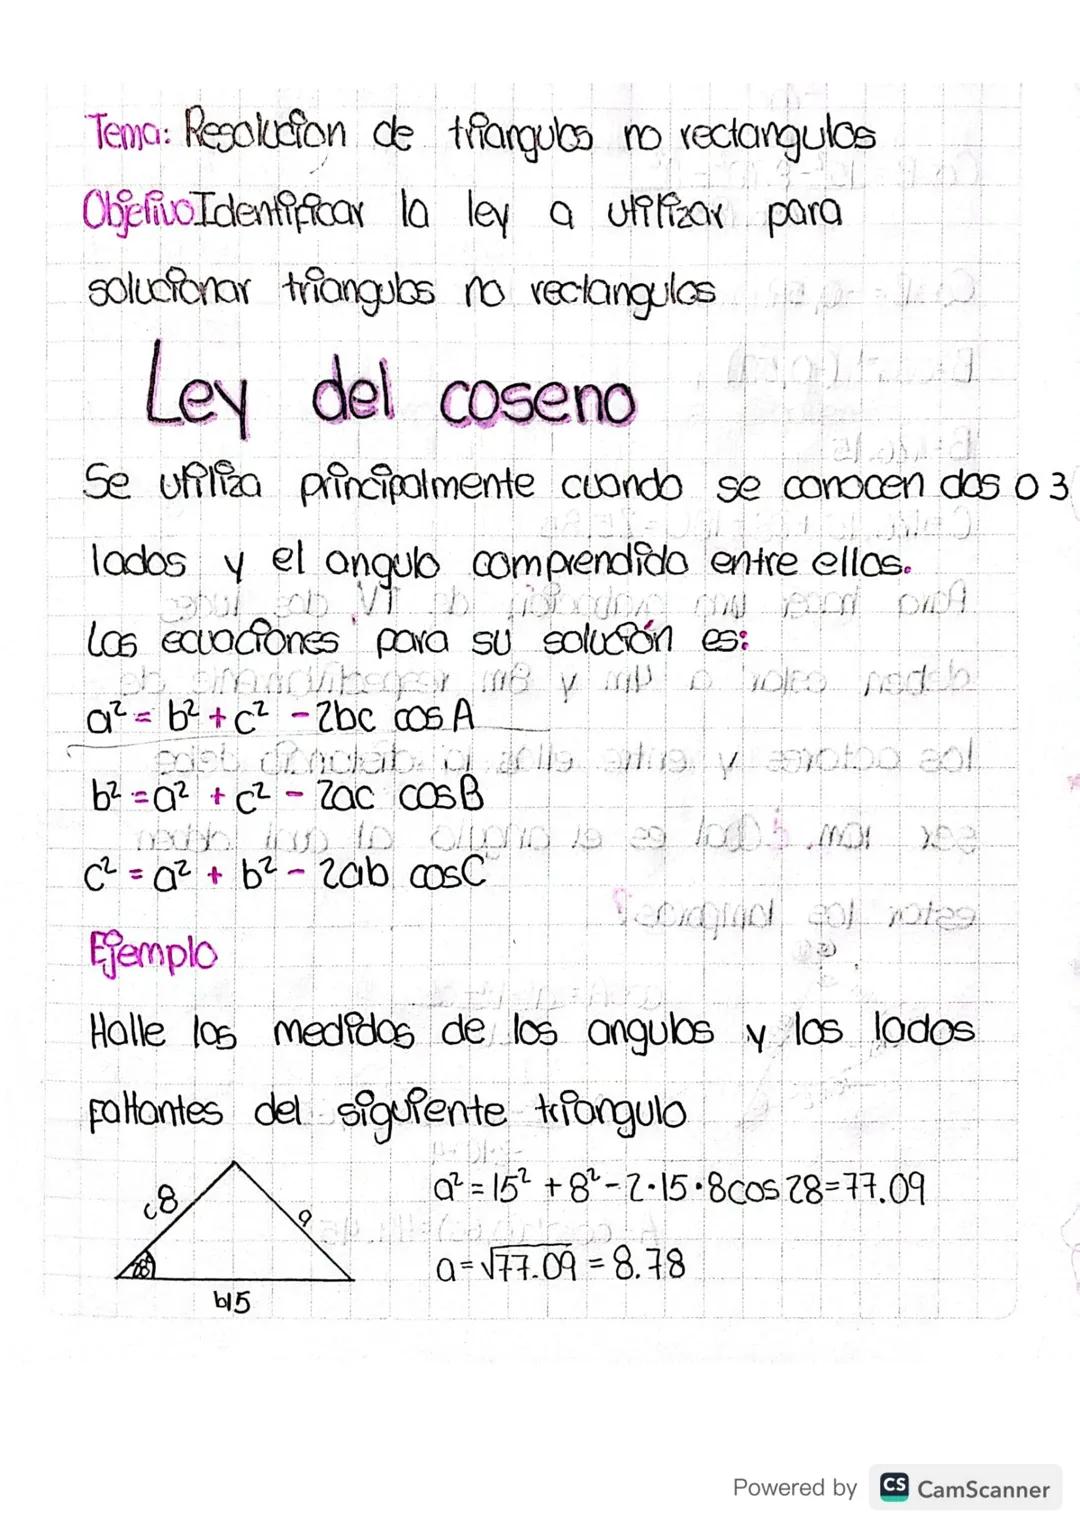 Tema: Resolucion de triangulos no rectangulos
Objetivo Identificar la ley a utilizar para
solucionar triangulos no rectangulos
Ley del coseno
Se utiliza principalmente cuando se conocen dos o 3
lados y el angulo comprendido entre ellos.
Las ecuaciones para su solución es:
a² = b² + c² - 2bc cos A
b² = a² + c² - 2ac cos B
c² = a² + b² - 2ab cos C
Ejemplo
Halle las medidas de los angulos y los lados
faltantes del siguiente triangulo
c8
a
28°
b15
a² = 15² + 8² - 2·15·8cos 28=77.09
a=√77.09 = 8.78
Powered by CS CamScanner